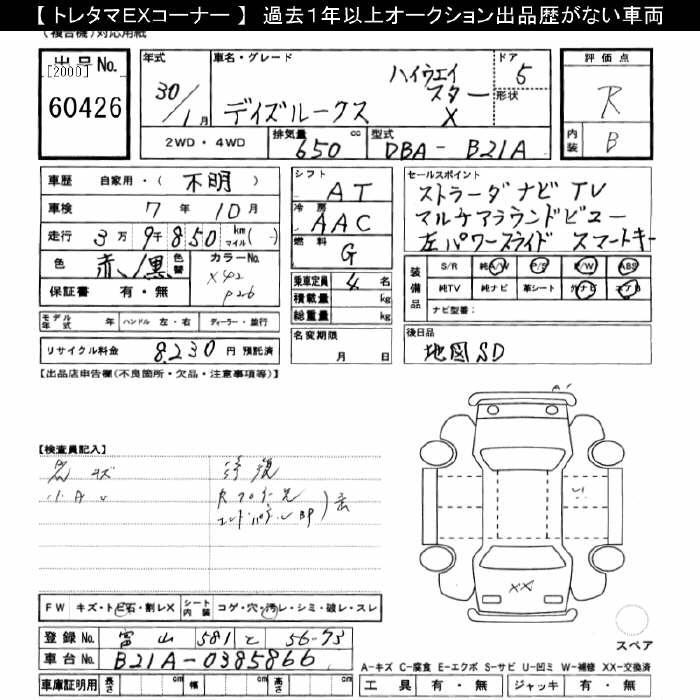 【 トレタマEXコーナー 】 過去1年以上オークション出品歴がない車両
(複合機) 対応用紙
出品No.
[2000]
60426
年式
30/1月
車名・グレード
デイズルークス
ハイウェイ
スター
X
ドア
5
形状
評価点
R
内装
B
2WD・4WD
排気量
650 cc
型式
DBA- B21A
車歴 自家用・( 不明 )
車検 7 年 10 月
走行 3 万 9 千 850 km マイル ( )
色 赤/黒 色替 カラーNo.
X42
P26
保証書 有・無
シフト
AT
冷房
AAC
燃料
G
乗車定員 4 名
積載量 kg
総重量 kg
セールスポイント
ストラーダナビ TV
マルチアラウンドビュー
左パワースライド スマートキー
装備品
S/R 純A/W P/S P/W ABS
純TV 純ナビ 革シート 外ナビ エアB
ナビ型番：
モデル年式 年 ハンドル 左・右 ディーラー・並行
リサイクル料金 8,230 円 預託済
名変期限
月 日
後日品
地図SD
【出品店申告欄(不良箇所・欠品・注意事項等)】
【検査員記入】
修復
小A
エンドパネルBP
A
XX
FW キズ・トビ石・割レX シート内装 コゲ・穴・汚レ・シミ・破レ・スレ
登録 No. 富山 581 と 56-73
車台 No. B21A-0385866
車庫証明用 長さ cm 幅 cm 高さ cm
スペア
A-キズ C-腐食 E-エクボ S-サビ U-凹ミ W-補修 XX-交換済
工具 有・無 ジャッキ 有・無